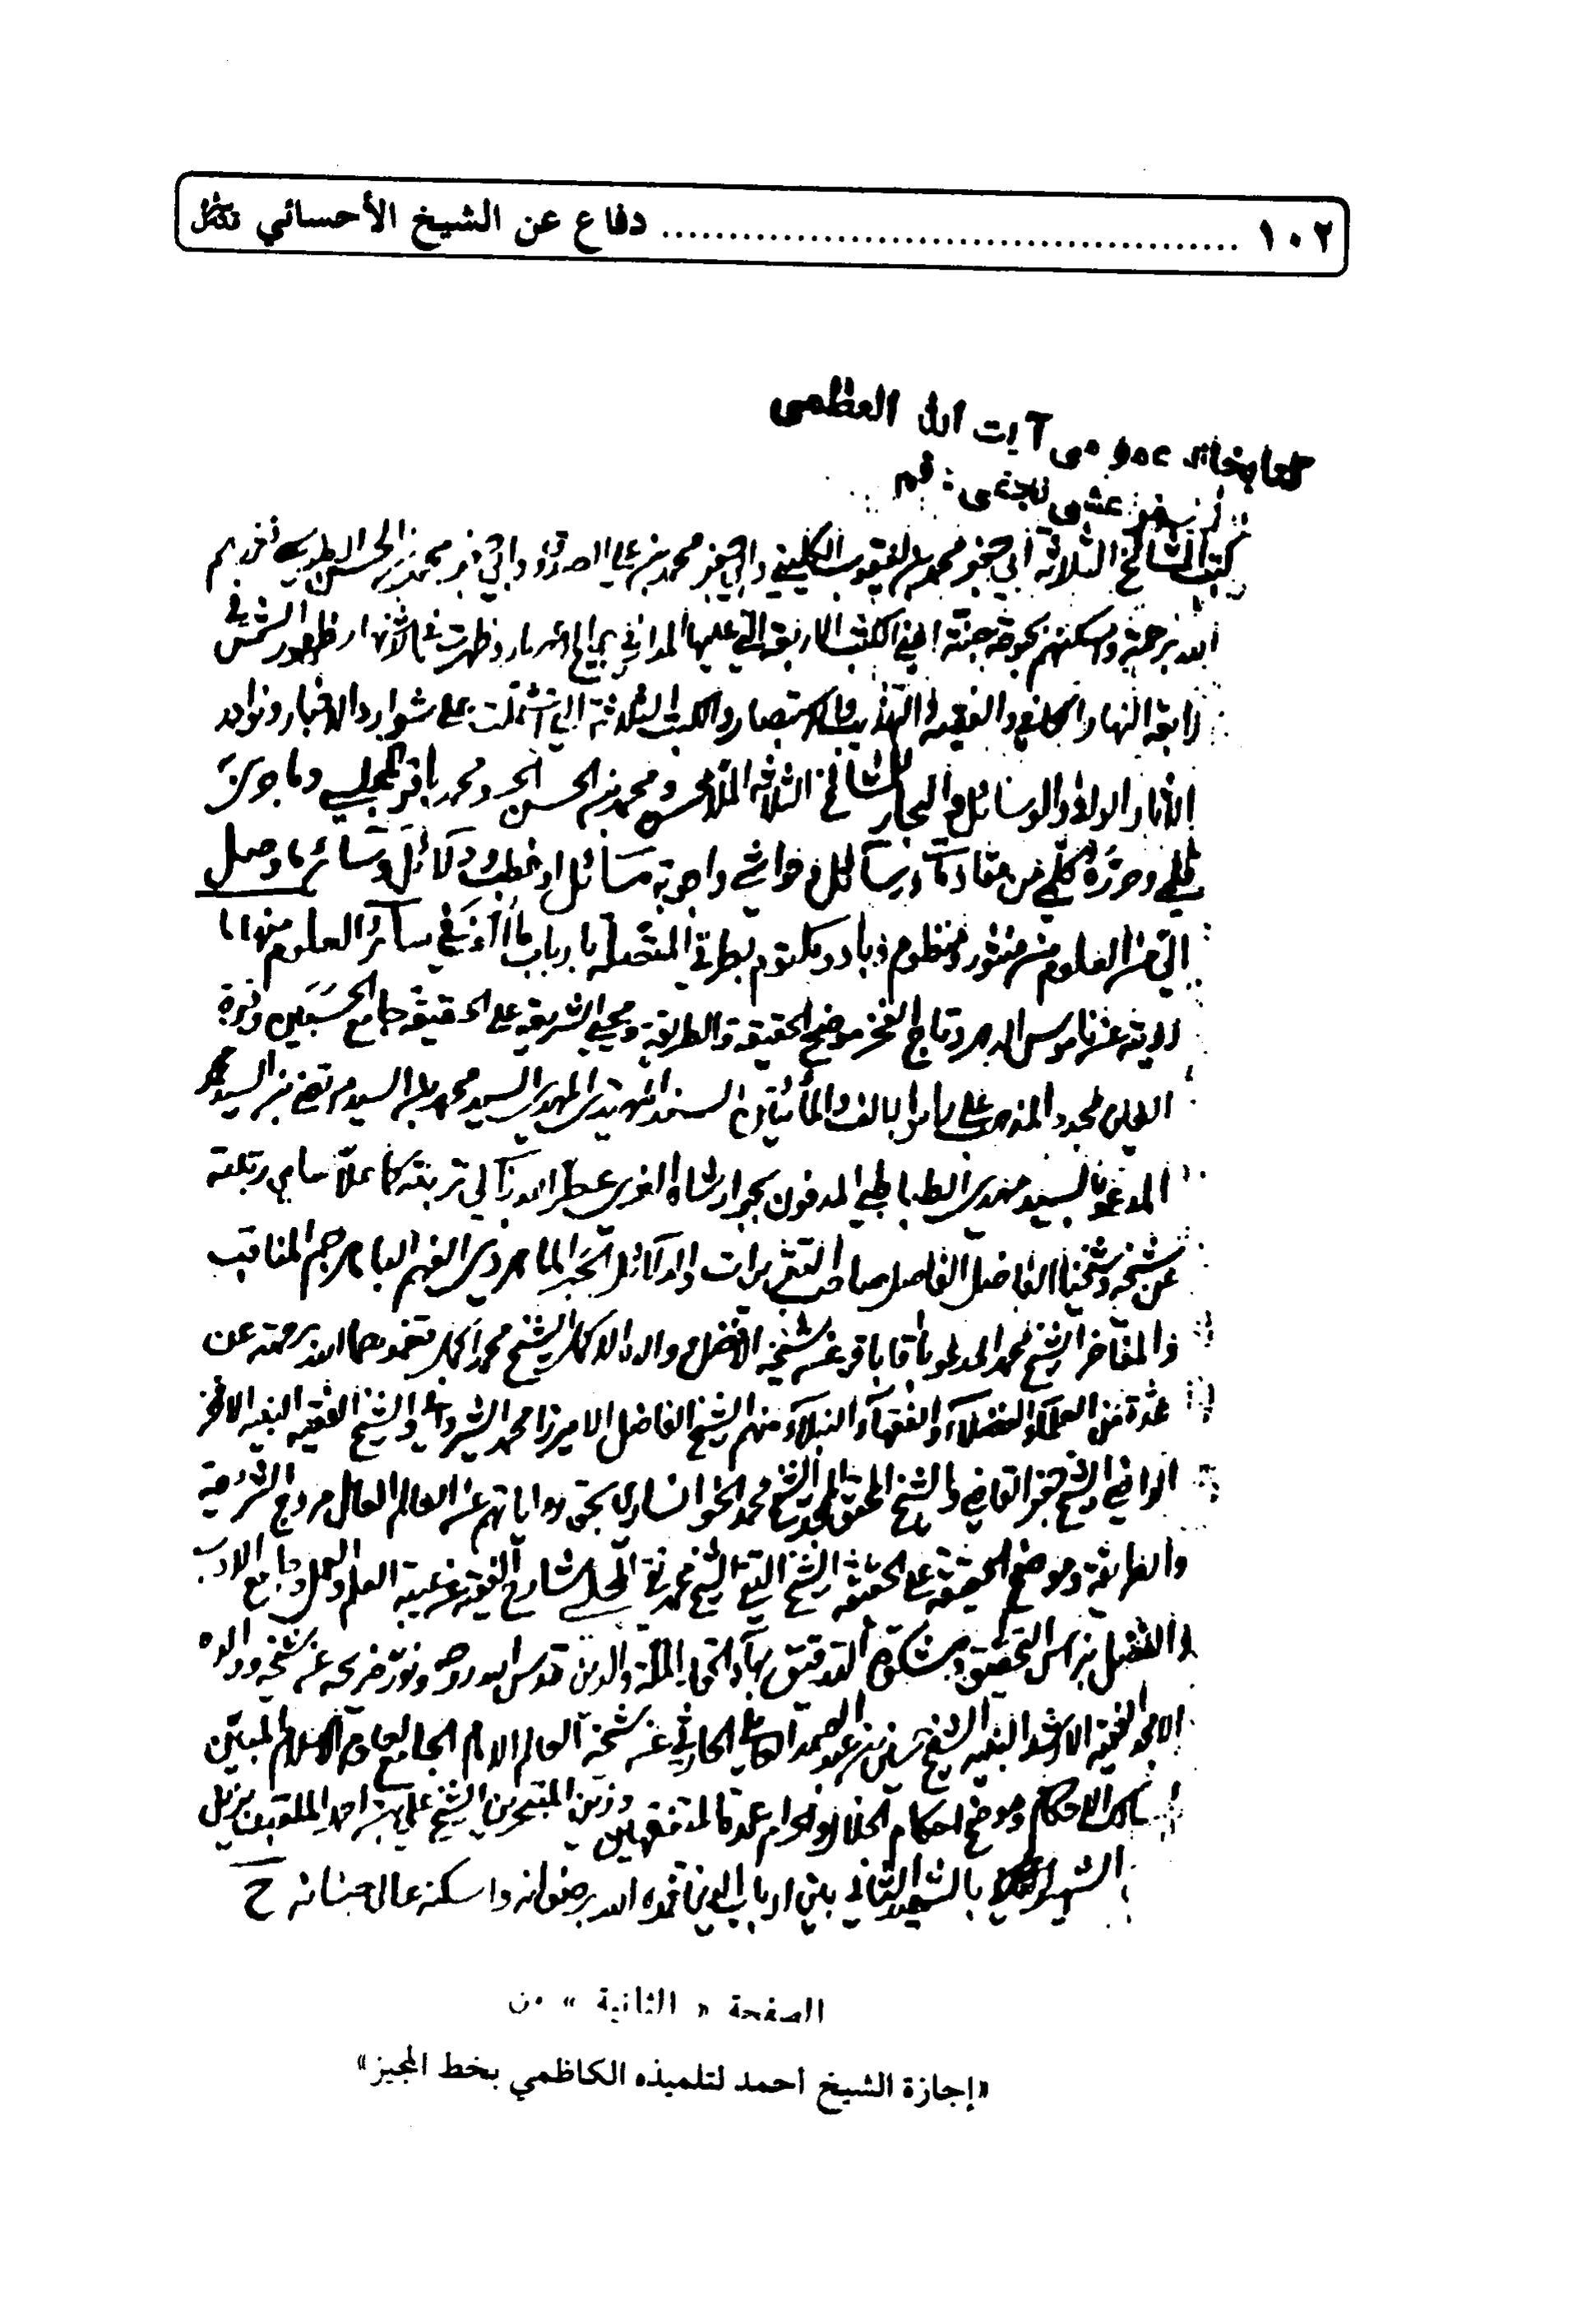 ١٠٢ ........................................ دفاع عن الشيخ الأحسائي
كتابخانه عمومى آيت الله العظمى
مرعشى نجفى - قم
كتب المشائخ الثلاثة ابي جعفر محمد بن يعقوب الكليني وابي جعفر محمد بن علي الصدوق وابي جعفر محمد بن الحسن الطوسي تغمدهم
الله برحمته واسكنهم بحبوحة جنته اعني الكتب الاربعة التي عليها المدار في جميع الاعصار وظهرت في الاشتهار ظهور الشمس في
رابعة النهار الكافي والفقيه والتهذيب والاستبصار والكتب الثلاثة التي اشتملت على شوارد الاخبار ونوادر
الاثار الوافي والوسائل والبحار للمشائخ الثلاثة الملا محسن ومحمد بن الحسن الحر ومحمد باقر المجلسي وما جرى به
قلمي وحرره كلمي من ورسائل وحواشي واجوبة مسائل او خطب وسائر ما وصل
الي من العلوم من منثور ومنظوم وباد ومكتوم بطرقي المتصلة بارباب في سائر العلوم منها ما
رويته عن ناموس الدهر وتاج الفخر موضح الحقيقة والطريقة ومحيي الشريعة على الحقيقة جامع الحسبين
مجدد المذهب على راس الالف والمأتين السند المهتدي المهدي السيد محمد بن السيد مرتضى بن السيد محمد
المدعو بالسيد مهدي الطباطبائي المدفون بجوار شاه الغري عطر الله تربته كما علا سامي رتبته
عن شيخه وشيخنا الفاضل صاحب التقريرات والدلائل الحبر الماهر ذي الفهم الباهر جم المناقب
والمفاخر الشيخ محمد المدعو بآقا باقر عن شيخه الافضل والده الاكمل الشيخ محمد اكمل تغمدهما الله برحمته عن
عدة من العلماء والفضلاء والفقهاء والنبلاء منهم الشيخ الفاضل الاميرزا محمد الشيرواني والشيخ الفقيه النبيه الافخر
الشيخ جعفر القاضي والشيخ المحقق المحدث الشيخ محمد الخوانساري بحق رواياتهم عن العالم العامل مروج الشريعة
والطريقة وموضح الحقيقة على الحقيقة الشيخ التقي الشيخ محمد تقي المجلسي شارح الفقيه عن عيبة العلم والعمل وجامع الادب
والفضل نبراس التحقيق ومشكوة التدقيق بهاء الحق والملة والدين قدس الله روحه ونور ضريحه عن شيخه ووالده
الامجد الفقيه الارشد النبيه الشيخ حسين بن عبد الصمد العاملي الحارثي عن شيخه العالم الامام الجامع لمعالم الاسلام المبين
الاحكام وموضح احكام الحلال والحرام عمدة المتفقهين وزين المتبحرين الشيخ علي بن احمد الملقب بزين
الشهير بالشهيد الثاني بين ارباب الدين تغمده الله برضوانه واسكنه عالي جنانه ح
الصفحة « الثانية » من
«إجازة الشيخ احمد لتلميذه الكاظمي بخط المجيز»